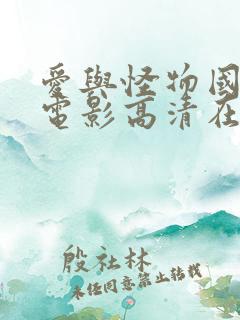 愛與怪物國
電影高清在
殷社林
未经同意禁止转载